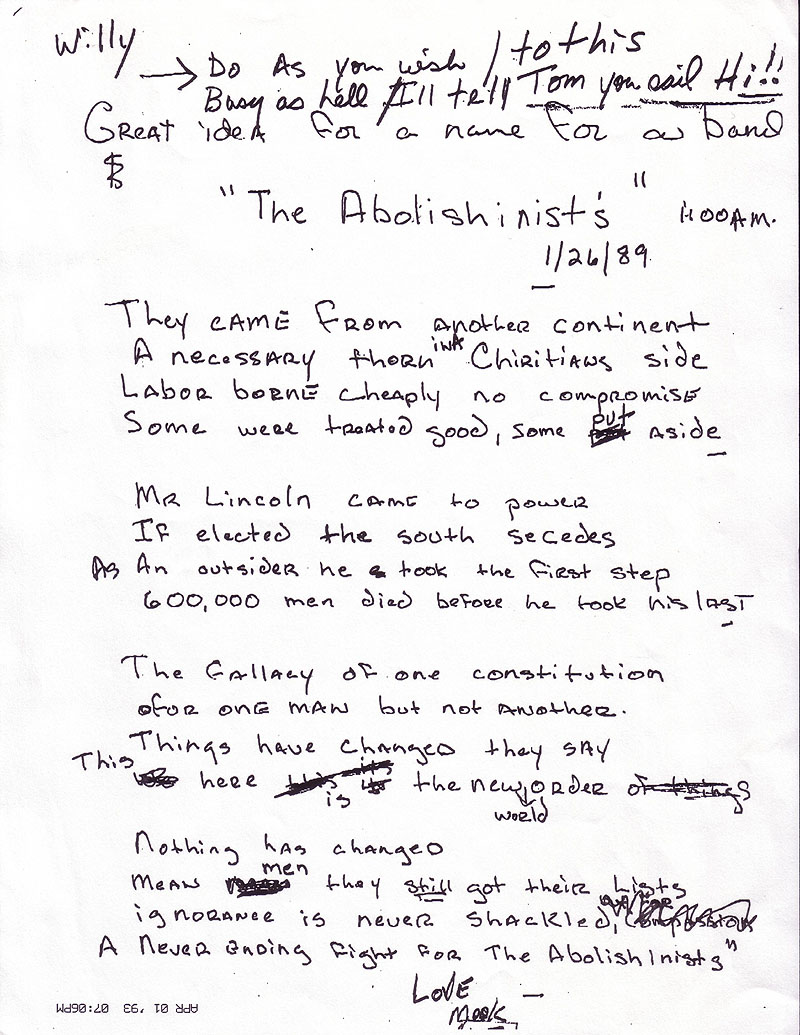 Willy
→ Do As you wish / to this
Busy as hell / I'll tell Tom you said Hi!!
Great idea for a name for a band
$
"The Abolishinist's" 11:00 A.M.
1/26/89
They came from another continent
A necessary thorn in a Chiritians side
Labor borne cheaply no compromise
Some were treated good, some put aside
Mr Lincoln came to power
If elected the south secedes
As An outsider he took the first step
600,000 men died before he took his last
The fallacy of one constitution
for one man but not another.
Things have changed they say
This here is the new world order
Nothing has changed
Mean men they still got their Lists
ignorance is never shackled,
A never ending fight for The Abolishinists"
Love
APR 01 '93 07:06PM